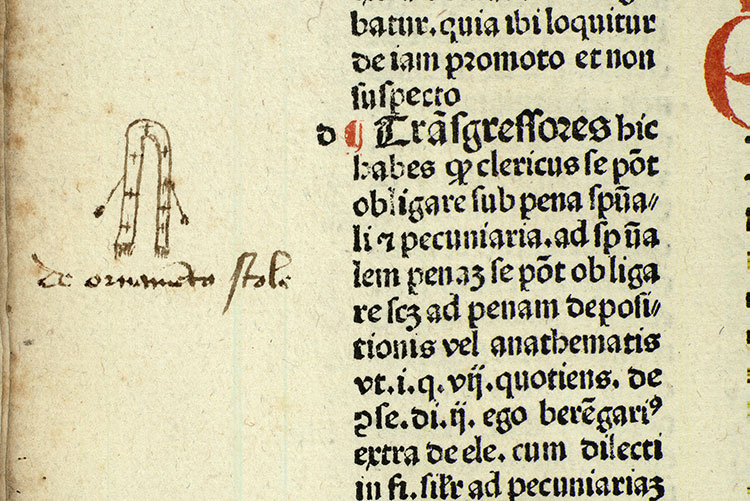 batur. quia ibi loquitur
de iam promoto et non
suspecto
d ¶ Trāsgressores hic
habes ꝙ clericus se pōt
obligare sub pena spūa⸗
li ⁊ pecuniaria. ad spūa
lem penaꝫ se pōt obliga
re scꝫ ad penam deposi⸗
tionis vel anathematis
vt. i. q. vij. quotiens. de
ꝯse. di. ij. ego berēgariꝰ
extra de ele. cum dilecti
in fi. silr ad pecuniariaꝫ
de ornamēto stole